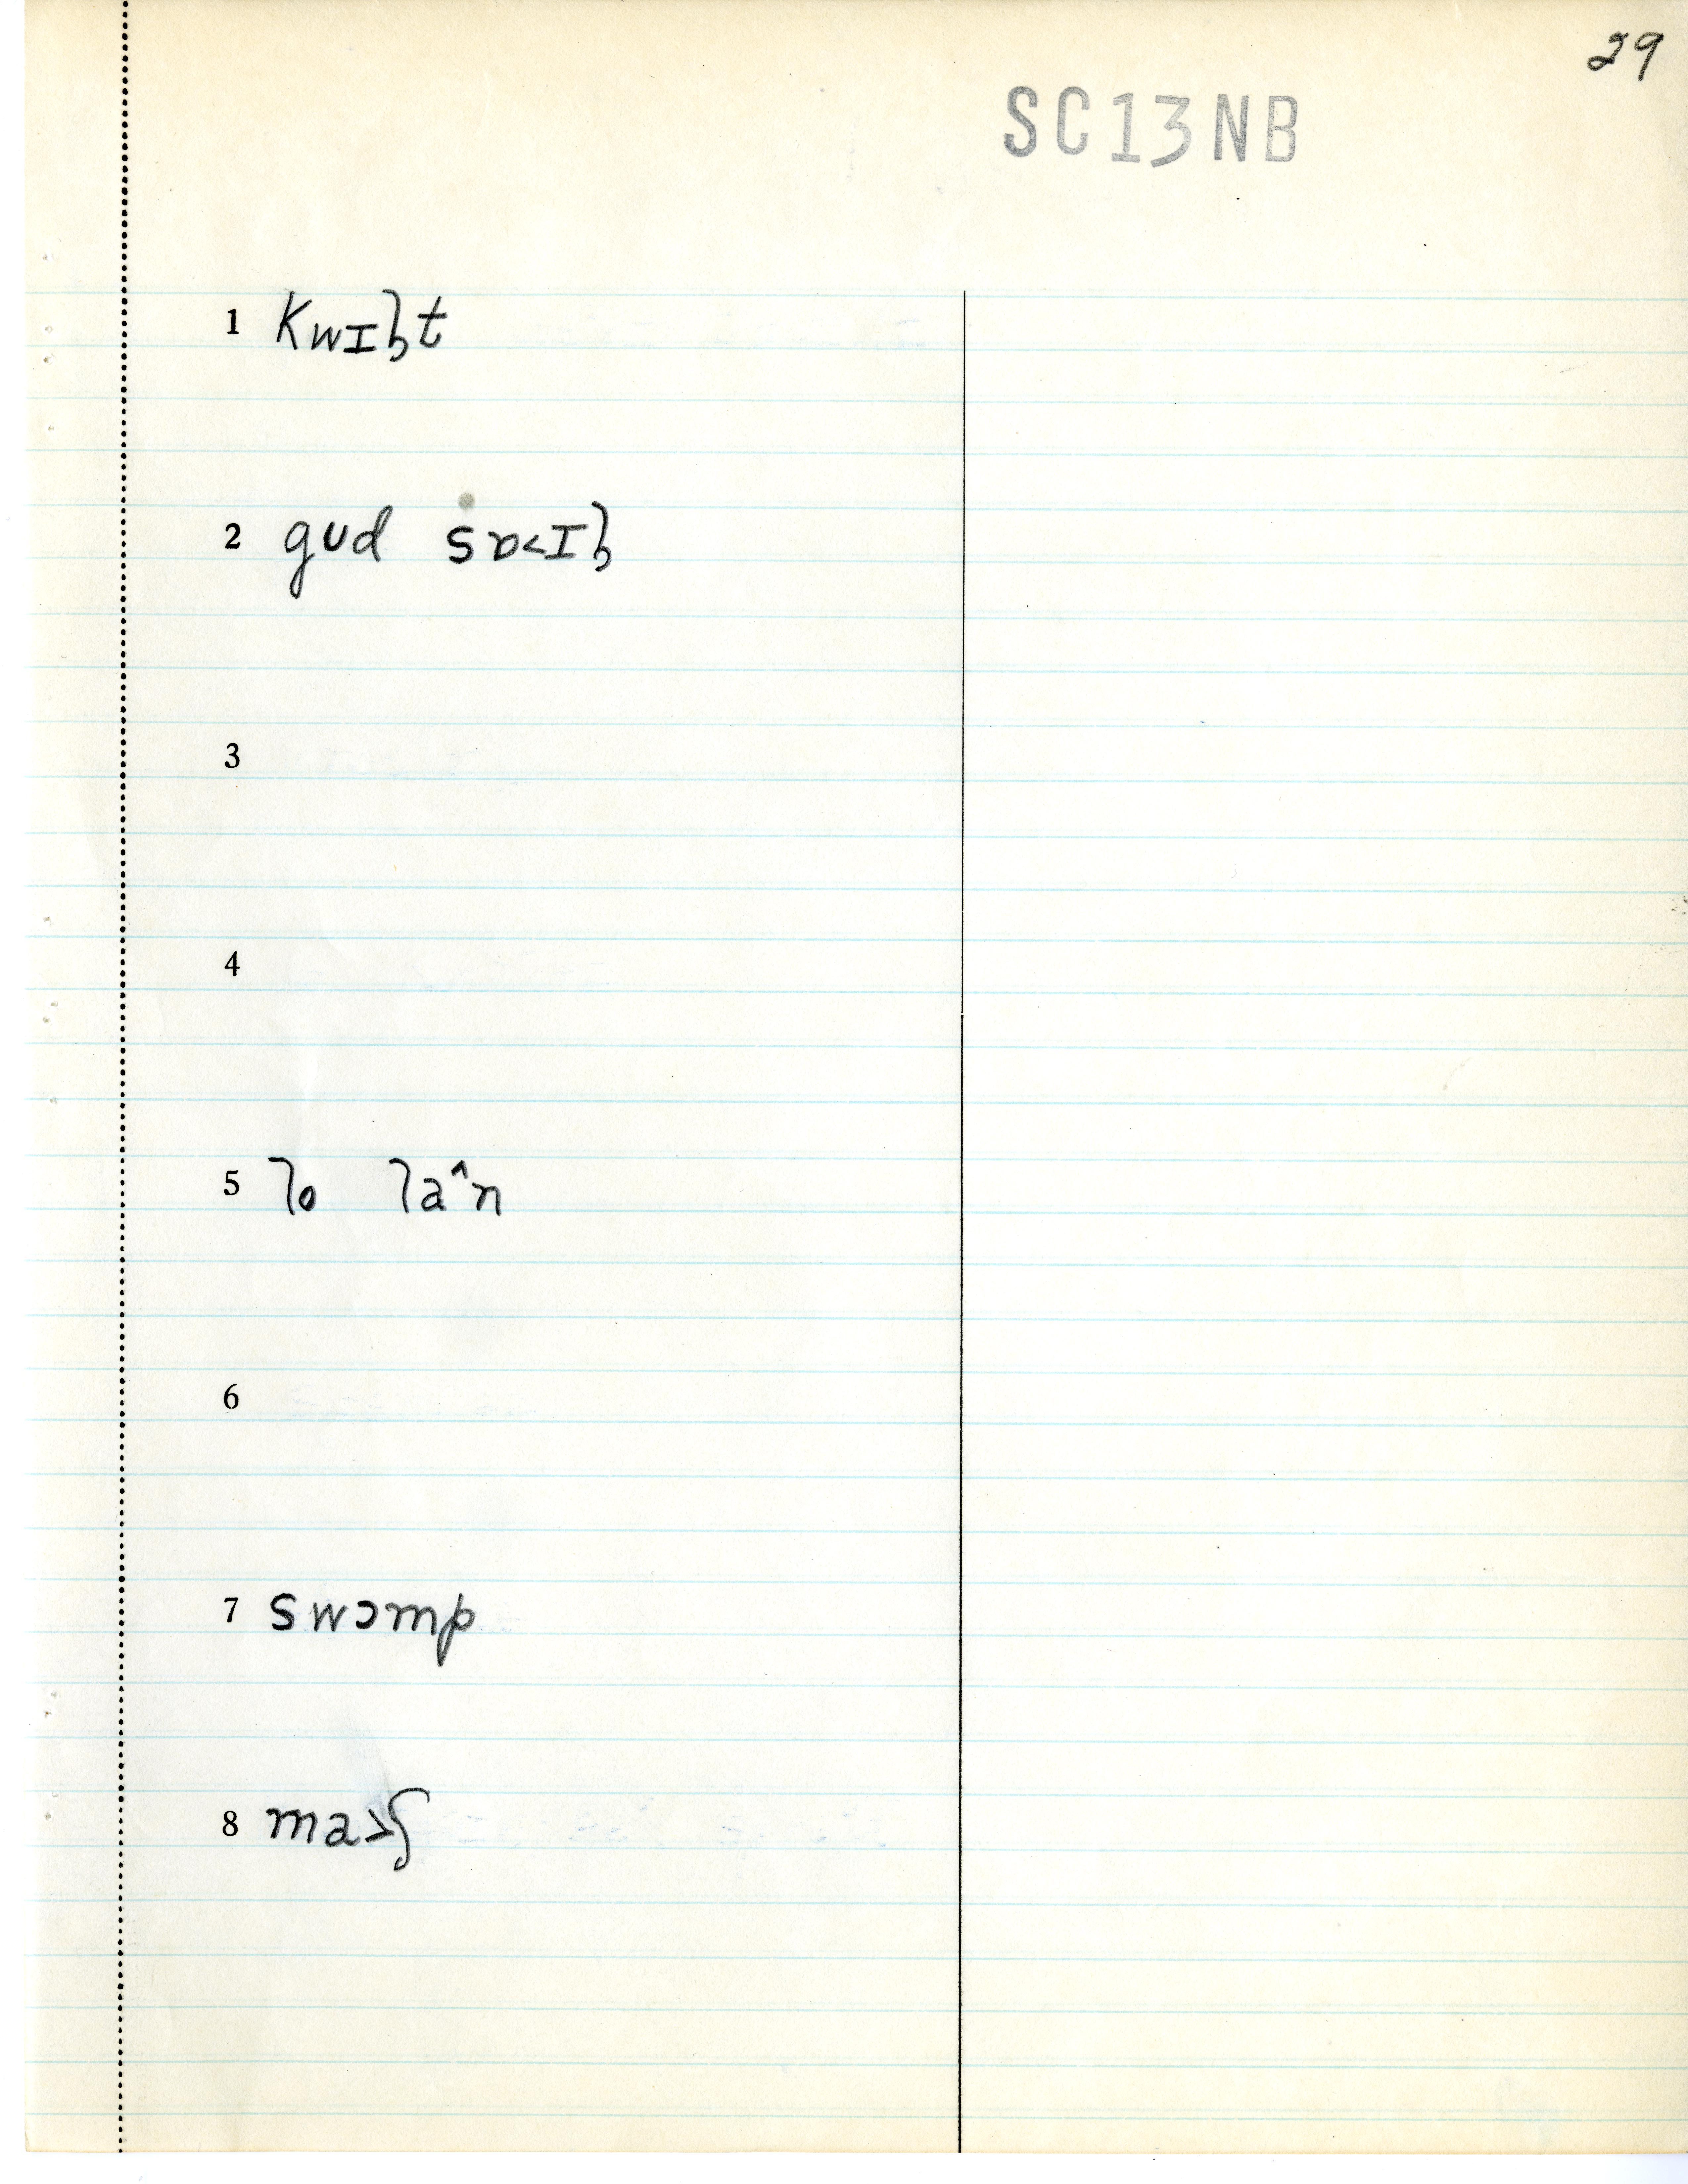 29
SC13NB
1 kwɪꞎt
2 gud sɒ<ɪɮ
3
4
5 ꞁo ꞁa^n
6
7 swɔmp
8 ma>ʃ